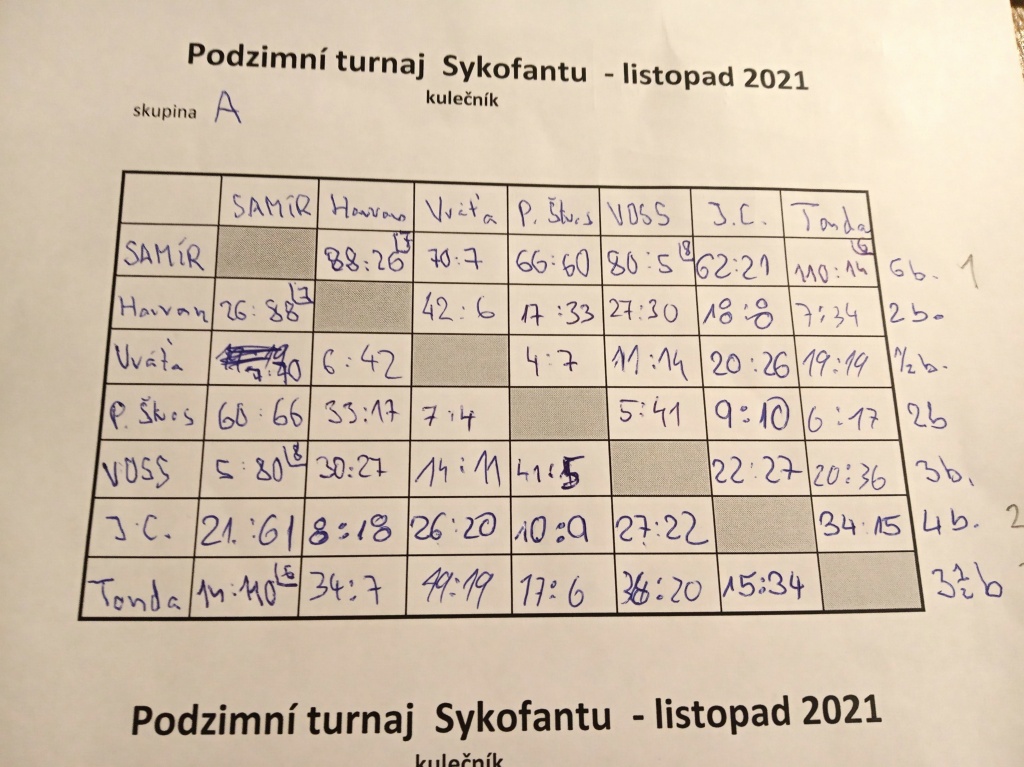 Podzimní turnaj Sykofantu - listopad 2021
kulečník
skupina A
SAMÍR Havran Vráťa P. Škos VOSS J.C. Tonda
SAMÍR 88:26 70:7 66:60 80:5 8 62:21 110:14 6 6b. 1
Havran 26:88 42:6 17:33 27:30 18:8 7:34 2b.
Vráťa 6:42 4:7 11:14 20:26 19:19 1/2b.
P. Škos 60:66 33:17 7:4 5:41 9:10 6:17 2b
VOSS 5:80 8 30:27 14:11 41:5 22:27 20:36 3b.
J.C. 21:61 8:18 26:20 10:9 27:22 34:15 4b. 2
Tonda 14:110 6 34:7 19:19 17:6 36:20 15:34 3 1/2 b
Podzimní turnaj Sykofantu - listopad 2021
kulečník